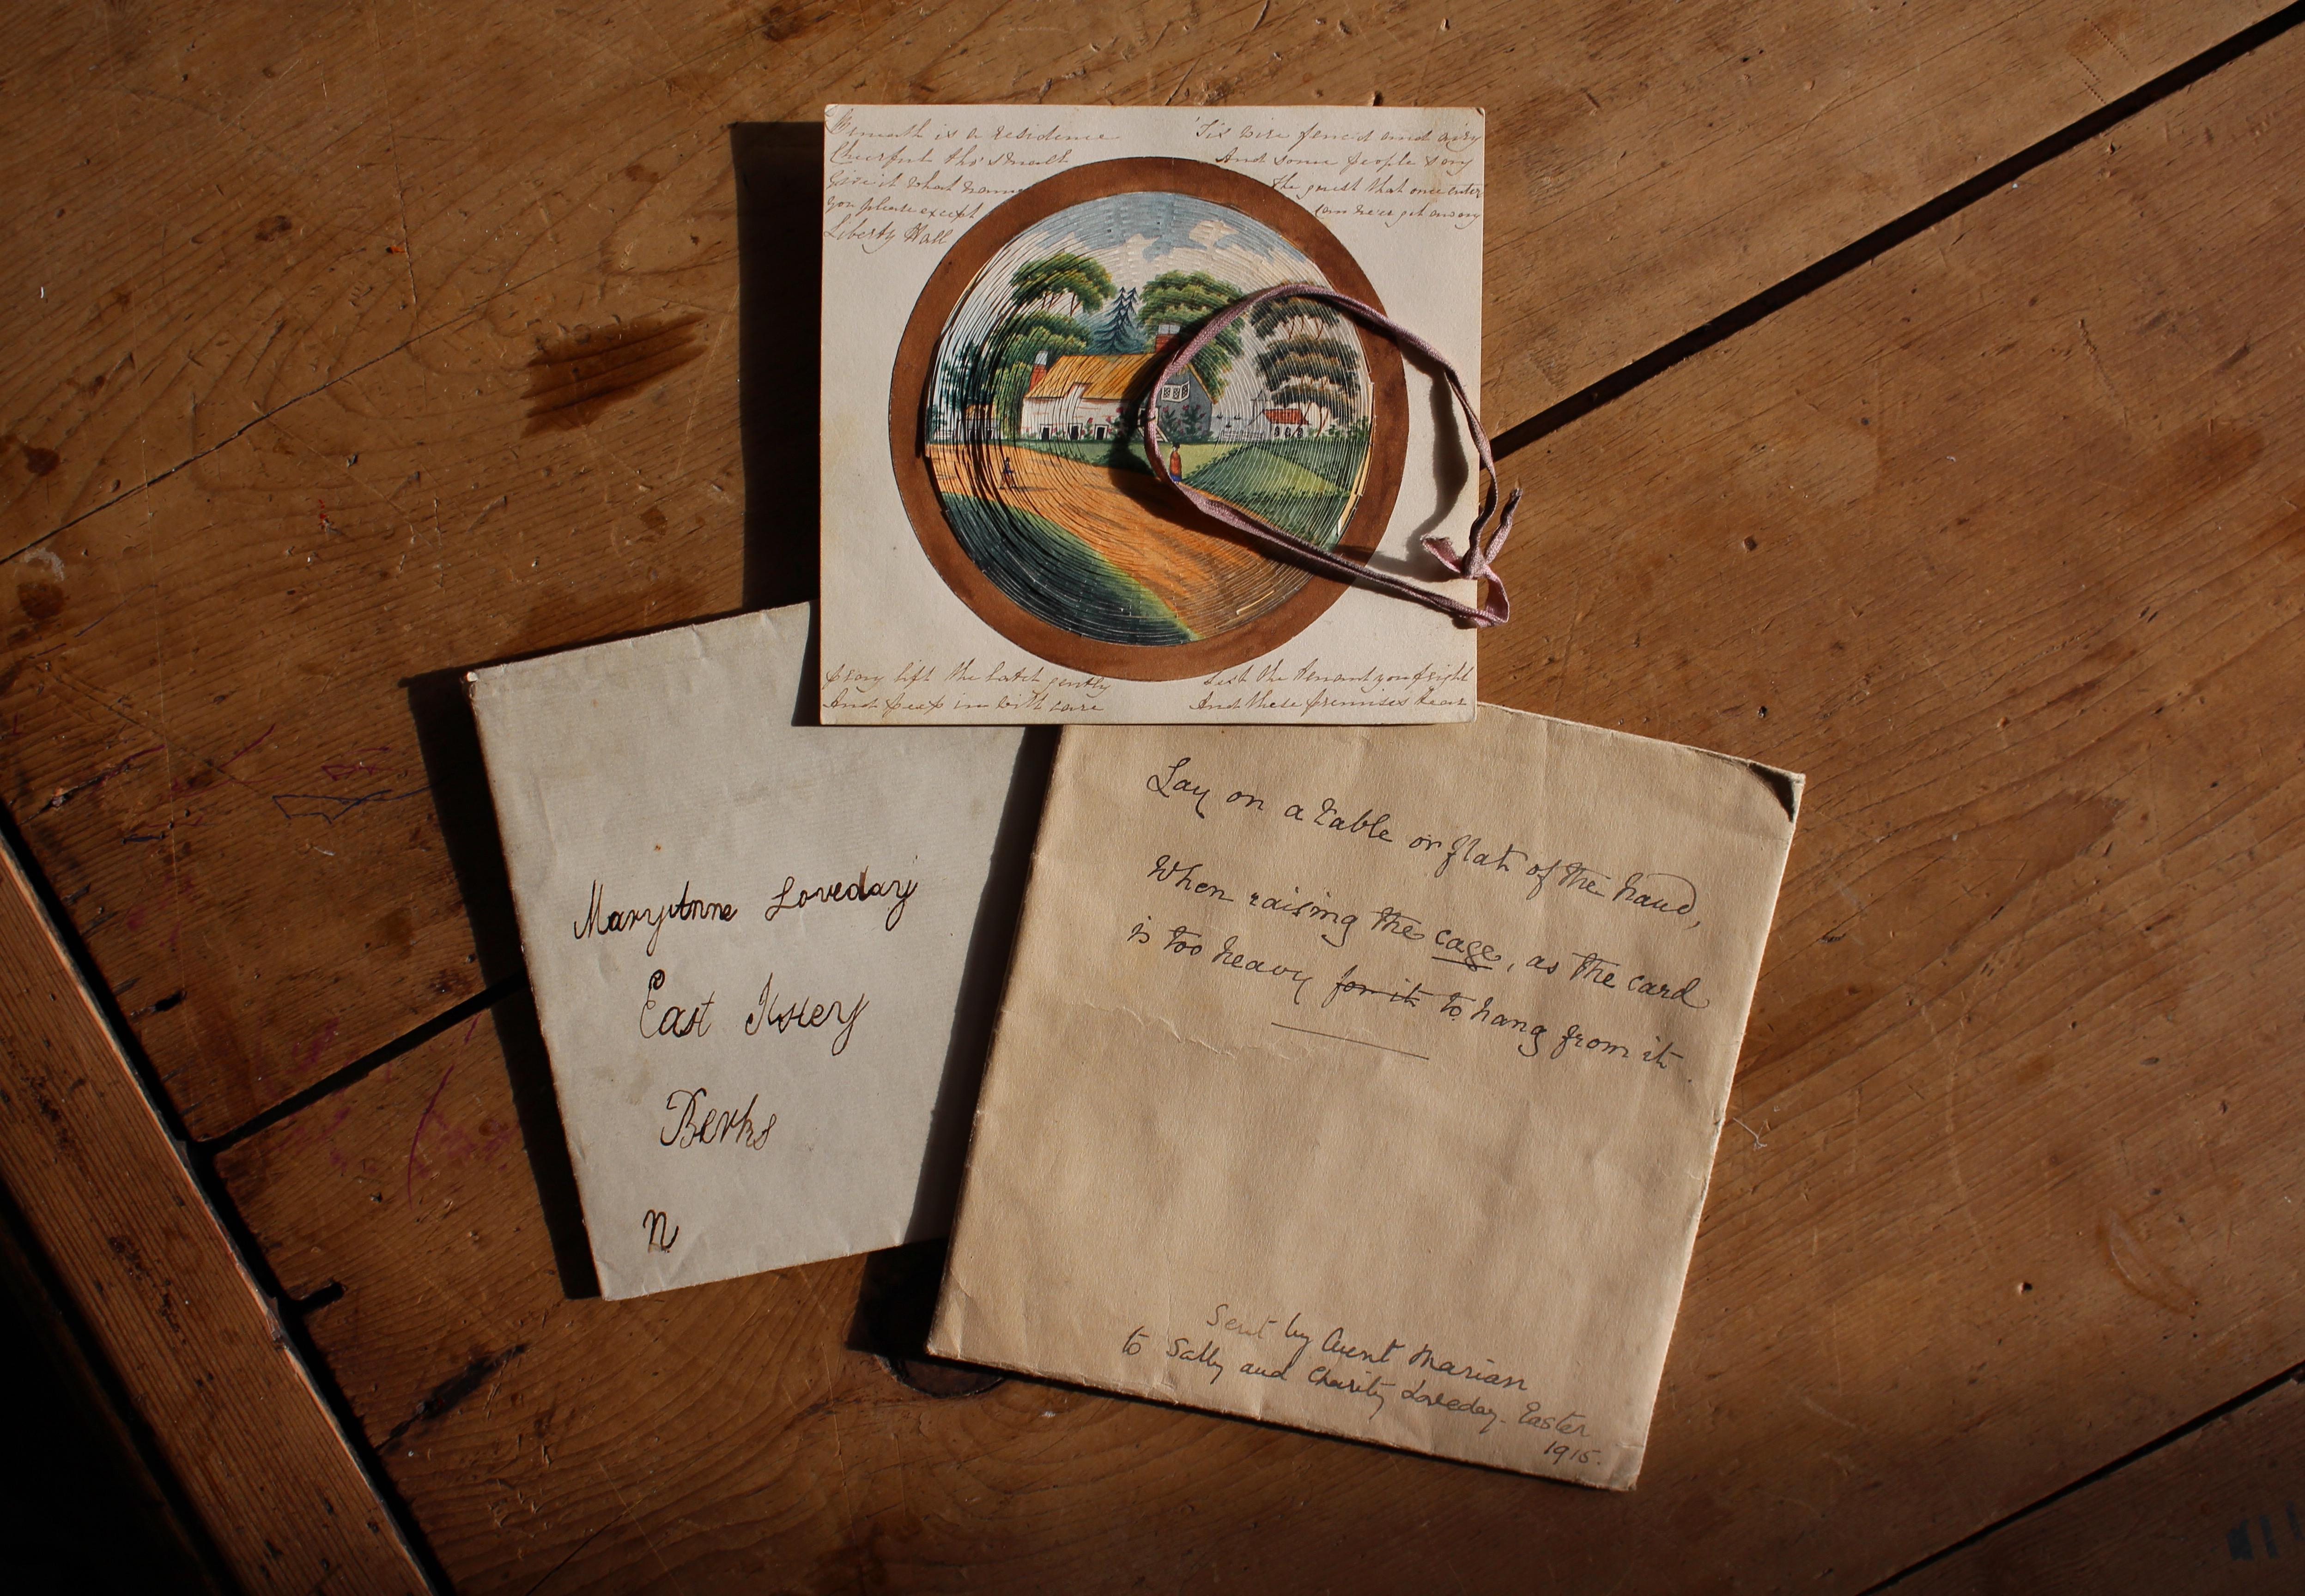 Beneath is a residence
Cheerful tho' small
Give it what name
you please except
Liberty Hall
'Tis wire fenc'd and airy
And some people say
The guest that once enters
Can ne'er get away
Pray lift the latch gently
And peep in with care
Lest the tenant you fright
And these premises tear
MaryAnne Loveday
East Ilsley
Berks
N
Lay on a table or flat of the hand,
When raising the cage, as the card
is too heavy for it to hang from it.
Sent by Aunt Marian
to Sally and Charity Loveday. Easter
1915.